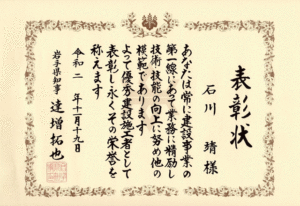 表彰状
石川 靖様
あなたは常に建設事業の
第一線にあって業務に精励し
技術技能の向上に努め他の
模範であります
よって優秀建設施工者として
表彰し永くその栄誉を
称えます
令和二年十月十九日
岩手県知事 達増拓也